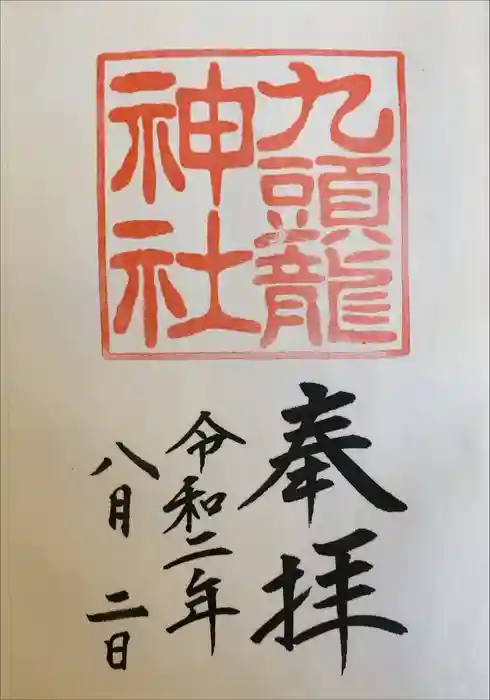 九頭龍
神社
奉拝
令和二年
八月 二日